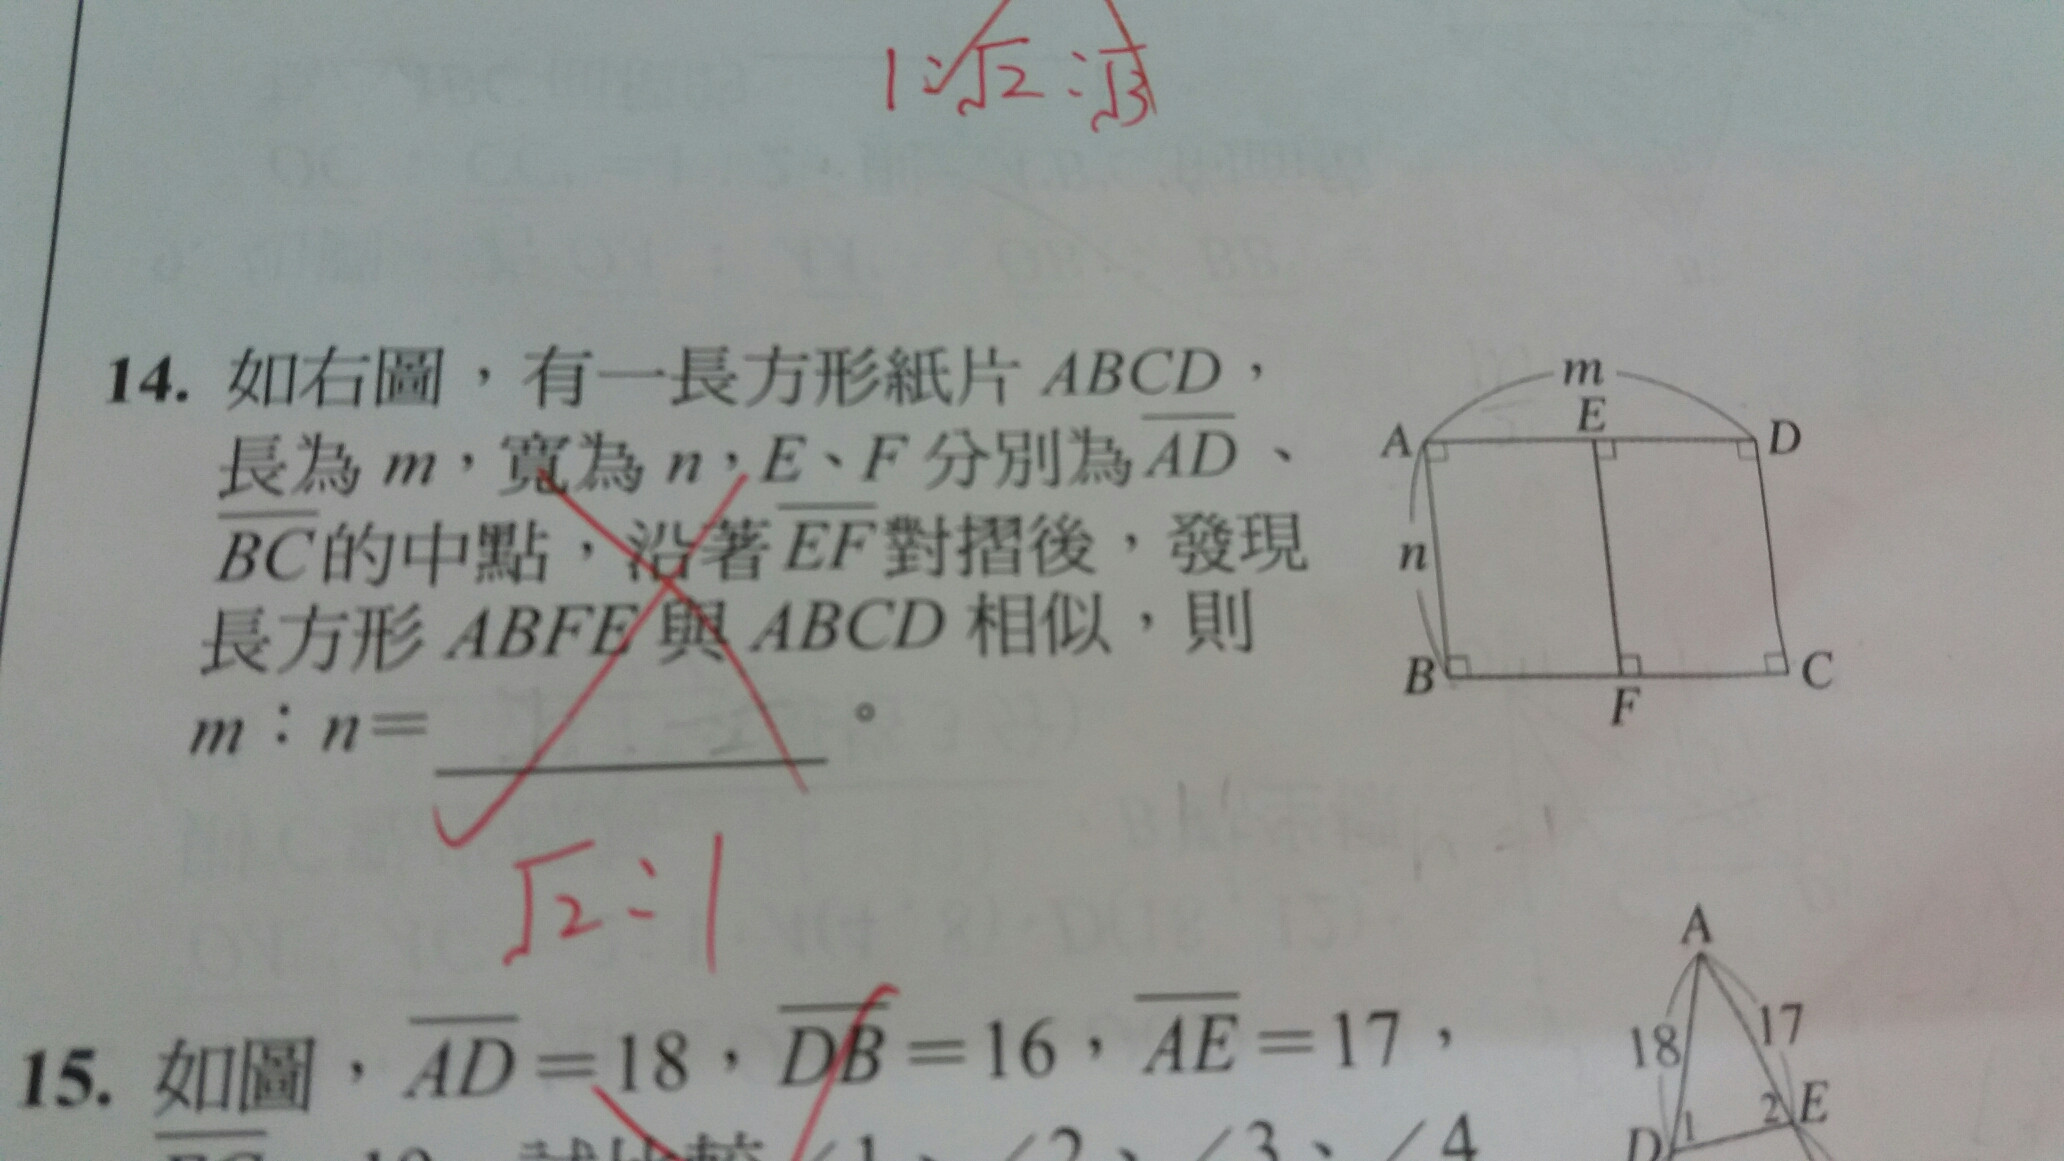 1:√2:√3
14. 如右圖,有一長方形紙片 ABCD,
長為 m,寬為 n,E、F 分別為 AD、
BC的中點,沿著 EF 對摺後,發現
長方形 ABFE 與 ABCD 相似,則
m:n=
。
√2:1
m
E
A
D
n
B
F
C
15. 如圖,AD=18,DB=16,AE=17,
A
18
17
2
E
D
1